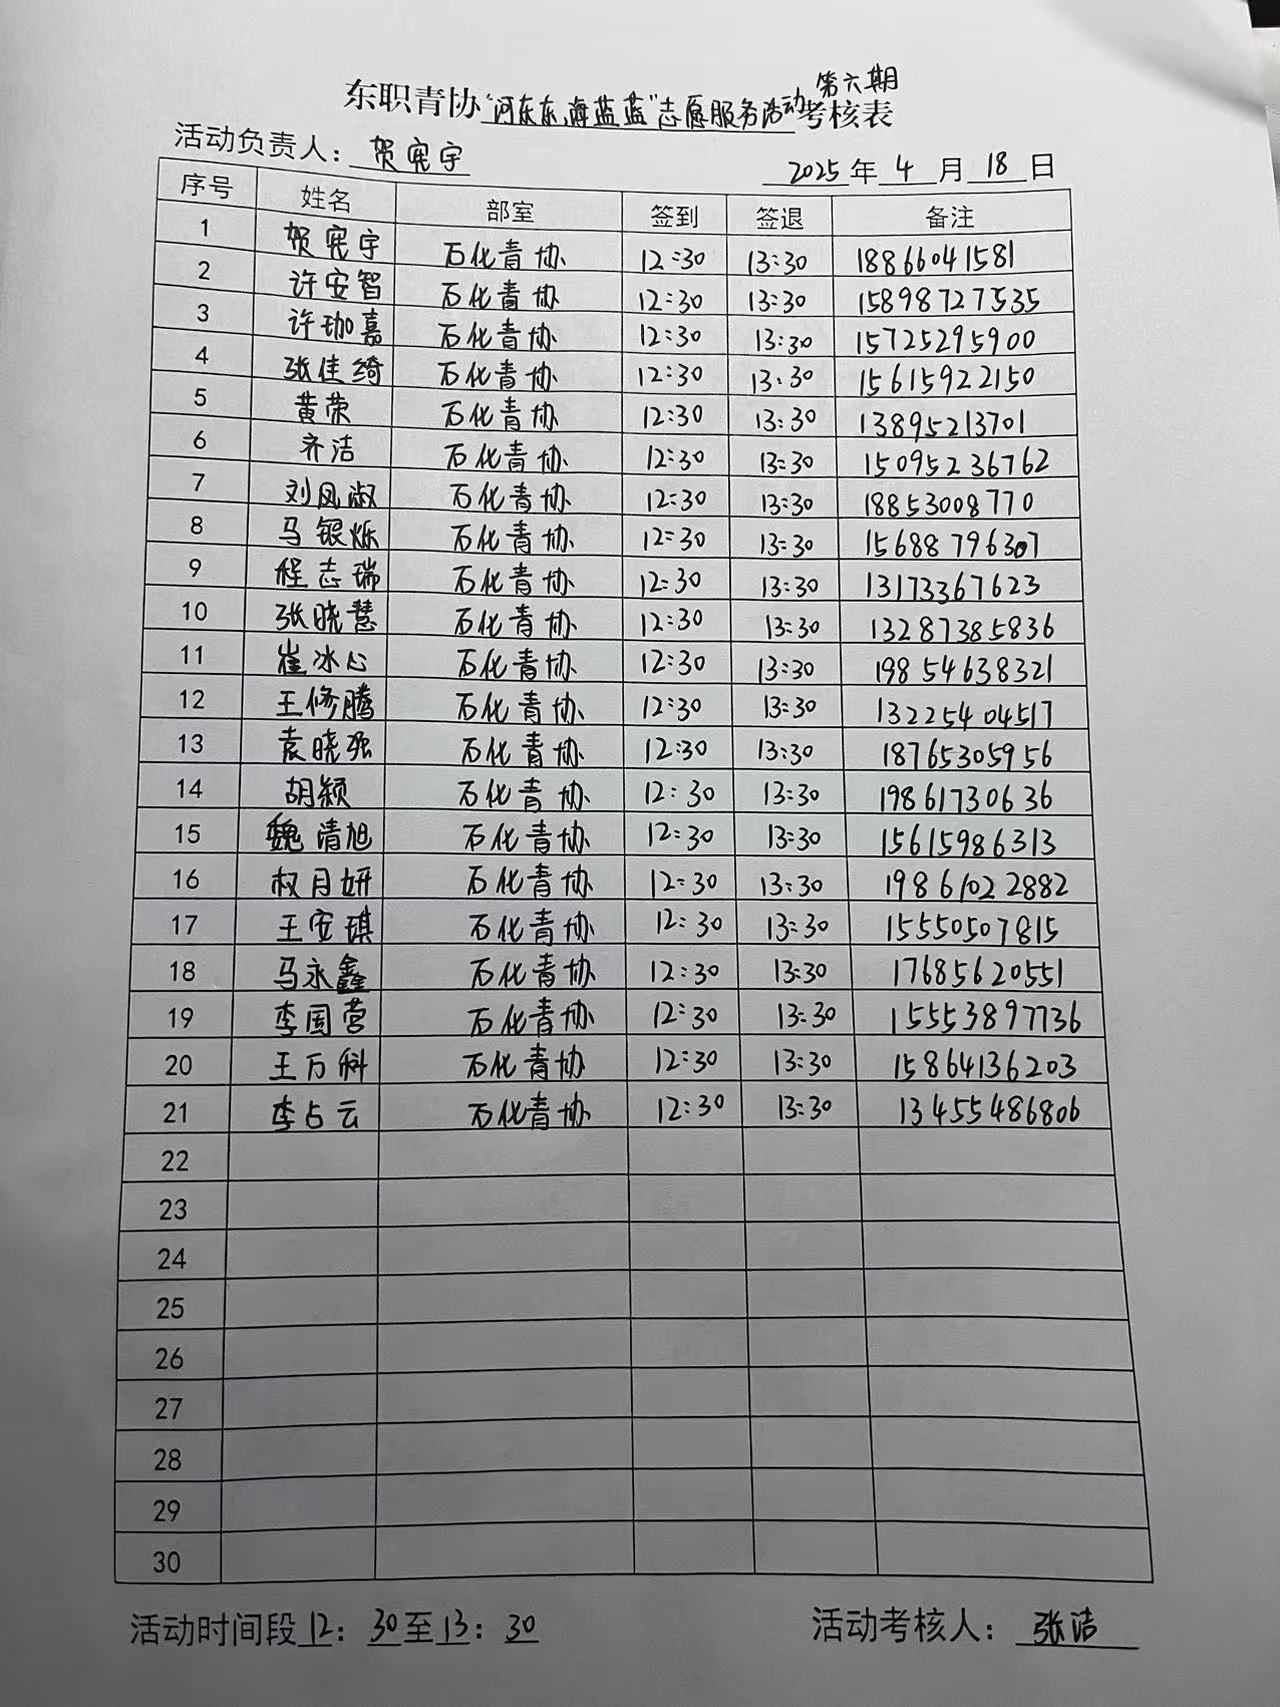 第六期
东职青协“河东东,海蓝蓝”志愿服务活动考核表
活动负责人：贺宪宇
2025年4月18日
序号 姓名 部室 签到 签退 备注
1 贺宪宇 石化青协 12:30 13:30 18866041581
2 许安智 石化青协 12:30 13:30 15898727535
3 许珈嘉 石化青协 12:30 13:30 15725295900
4 张佳绮 石化青协 12:30 13:30 15615922150
5 黄荣 石化青协 12:30 13:30 13895213701
6 齐洁 石化青协 12:30 13:30 15095236762
7 刘凤淑 石化青协 12:30 13:30 18853008770
8 马银烁 石化青协 12:30 13:30 15688796307
9 程志瑞 石化青协 12:30 13:30 13173367623
10 张晓慧 石化青协 12:30 13:30 13287385836
11 崔冰心 石化青协 12:30 13:30 19854638321
12 王修腾 石化青协 12:30 13:30 13225404517
13 袁晓强 石化青协 12:30 13:30 18765305956
14 胡颖 石化青协 12:30 13:30 19861730636
15 魏清旭 石化青协 12:30 13:30 15615986313
16 权月妍 石化青协 12:30 13:30 19861022882
17 王安琪 石化青协 12:30 13:30 15550507815
18 马永鑫 石化青协 12:30 13:30 17685620551
19 李国营 石化青协 12:30 13:30 15553897736
20 王万科 石化青协 12:30 13:30 15864136203
21 李占云 石化青协 12:30 13:30 13455486806
22
23
24
25
26
27
28
29
30
活动时间段12：30至13：30 活动考核人：张洁